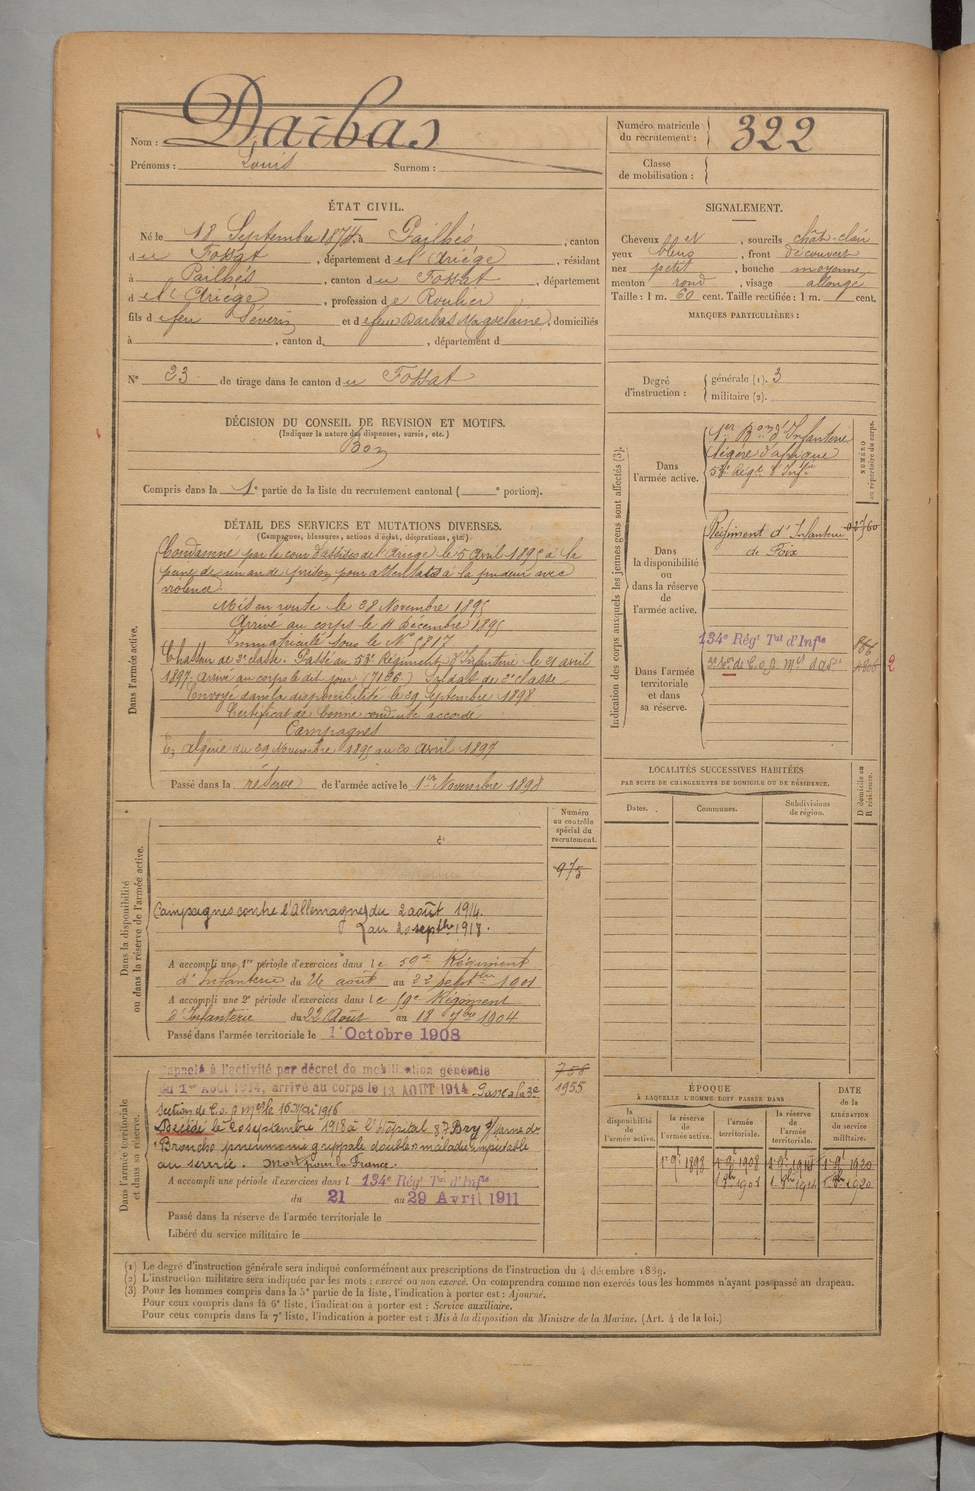 Nom : Darbas
Prénoms : Louis Surnom :
Numéro matricule du recrutement : 322
Classe de mobilisation :
ÉTAT CIVIL.
Né le 18 Septembre 1874, à Pailhés, canton
du Fossat, département de l'Ariége, résidant
à Pailhés, canton du Fossat, département
de l'Ariége, profession de Roulier
fils de feu Séverin et de feue Darbas Magdelaine, domiciliés
à , canton d , département d
N° 23 de tirage dans le canton du Fossat
SIGNALEMENT.
Cheveux et, sourcils chât-clair
yeux bleus, front découvert
nez petit, bouche moyenne,
menton rond, visage allongé
Taille : 1 m. 60 cent. Taille rectifiée : 1 m. cent.
MARQUES PARTICULIÈRES :
Degré d'instruction : générale (1). 3
militaire (2).
DÉCISION DU CONSEIL DE REVISION ET MOTIFS.
(Indiquer la nature des dispenses, sursis, etc.)
Bon
Compris dans la 1e partie de la liste du recrutement cantonal ( e portion).
DÉTAIL DES SERVICES ET MUTATIONS DIVERSES.
(Campagnes, blessures, actions d'éclat, décorations, etc.)
Dans l'armée active.
Condamné par la cour d'assises de l'Ariege le 5 Avril 1895 à la
peine de un an de prison pour attentats à la pudeur avec
violence.
Mis en route le 28 Novembre 1895
Arrivé au corps le 11 décembre 1895
Immatriculé sous le N° 5817
Chasseur de 2e classe. Passé au 53e Régiment d'Infanterie le 21 avril
1897. Arrivé au corps le dit jour (7136) Soldat de 2e classe
Envoyé dans la disponibilité le 29 Septembre 1898
Certificat de bonne conduite accordé
Campagnes
Algérie du 29 Novembre 1895 au 20 avril 1897
Passé dans la réserve de l'armée active le 1er Novembre 1898
Indication des corps auxquels les jeunes gens sont affectés (3).
NUMÉRO au répertoire du corps.
Dans l'armée active.
1er Bon d'Infanterie
légère d'afrique
53e Régt d'Infie
Dans la disponibilité ou dans la réserve de l'armée active.
Régiment d'Infanterie
de Foix
Dans l'armée territoriale et dans sa réserve.
134e Régt Tal d'Infie
LOCALITÉS SUCCESSIVES HABITÉES
PAR SUITE DE CHANGEMENTS DE DOMICILE OU DE RÉSIDENCE.
Dates. Communes. Subdivisions de région. D domicile ou R résidence.
Dans la disponibilité ou dans la réserve de l'armée active.
Numéro au contrôle spécial du recrutement.
975
Campagnes contre l'Allemagne du 2 août 1914.
au 20 septbre 1918.
A accompli une 1re période d'exercices dans le 59e Régiment
d'Infanterie du 26 août au 22 septbre 1901
A accompli une 2e période d'exercices dans le 59e Régiment
d'Infanterie du 22 Août au 18 7bre 1904
Passé dans l'armée territoriale le 1er Octobre 1908
Dans l'armée territoriale et dans sa réserve.
758
1955
Rappelé à l'activité par décret de mobilisation générale
du 1er Août 1914, arrivé au corps le 13 AOUT 1914. Passé à la 3e
Section de C.O.A mre le 16 Mai 1916
Décédé le 20 septembre 1918 à l'hôpital 87 Bry s/Marne de
"Broncho pneumonie grippale double" maladie imputable
au service. Mort pour la France.
A accompli une période d'exercices dans l 134e Régt Tal d'Infie
du 21 au 29 Avril 1911
Passé dans la réserve de l'armée territoriale le
Libéré du service militaire le
ÉPOQUE
À LAQUELLE L'HOMME DOIT PASSER DANS
la disponibilité de l'armée active. la réserve de l'armée active. l'armée territoriale. la réserve de l'armée territoriale.
DATE de la LIBÉRATION du service militaire.
(1) Le degré d'instruction générale sera indiqué conformément aux prescriptions de l'instruction du 4 décembre 1889.
(2) L'instruction militaire sera indiquée par les mots : exercé ou non exercé. On comprendra comme non exercés tous les hommes n'ayant pas passé au drapeau.
(3) Pour les hommes compris dans la 5e partie de la liste, l'indication à porter est : Ajourné.
Pour ceux compris dans la 6e liste, l'indication à porter est : Service auxiliaire.
Pour ceux compris dans la 7e liste, l'indication à porter est : Mis à la disposition du Ministre de la Marine. (Art. 4 de la loi.)